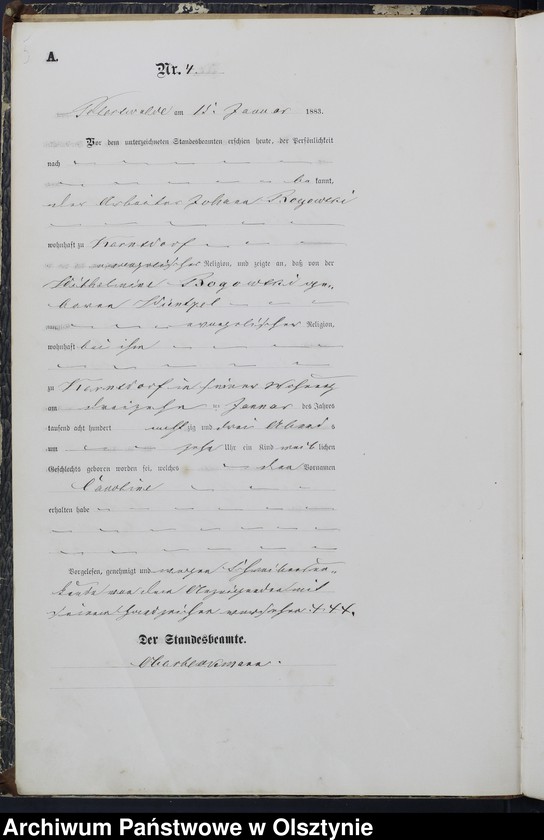 A.
Nr. 4.
am 15. Januar 1883.
Vor dem unterzeichneten Standesbeamten erschien heute, der Persönlichkeit
nach
bekannt,
der Arbeiter Johann Rogowski
wohnhaft zu Kernsdorf
evangelischer Religion, und zeigte an, daß von der
Wilhelmine Rogowski ge-
boren
evangelischer Religion,
wohnhaft bei ihm
zu Kernsdorf in seiner Wohnung
am dreizehn ten Januar des Jahres
tausend acht hundert achtzig und drei Abends
um zehn Uhr ein Kind weiblichen
Geschlechts geboren worden sei, welches den Vornamen
Caroline
erhalten habe
Vorgelesen, genehmigt und wegen Schreibensun-
kunde von dem Anzeigenden mit
seinem Handzeichen versehen +++.
Der Standesbeamte.
Archiwum Państwowe w Olsztynie